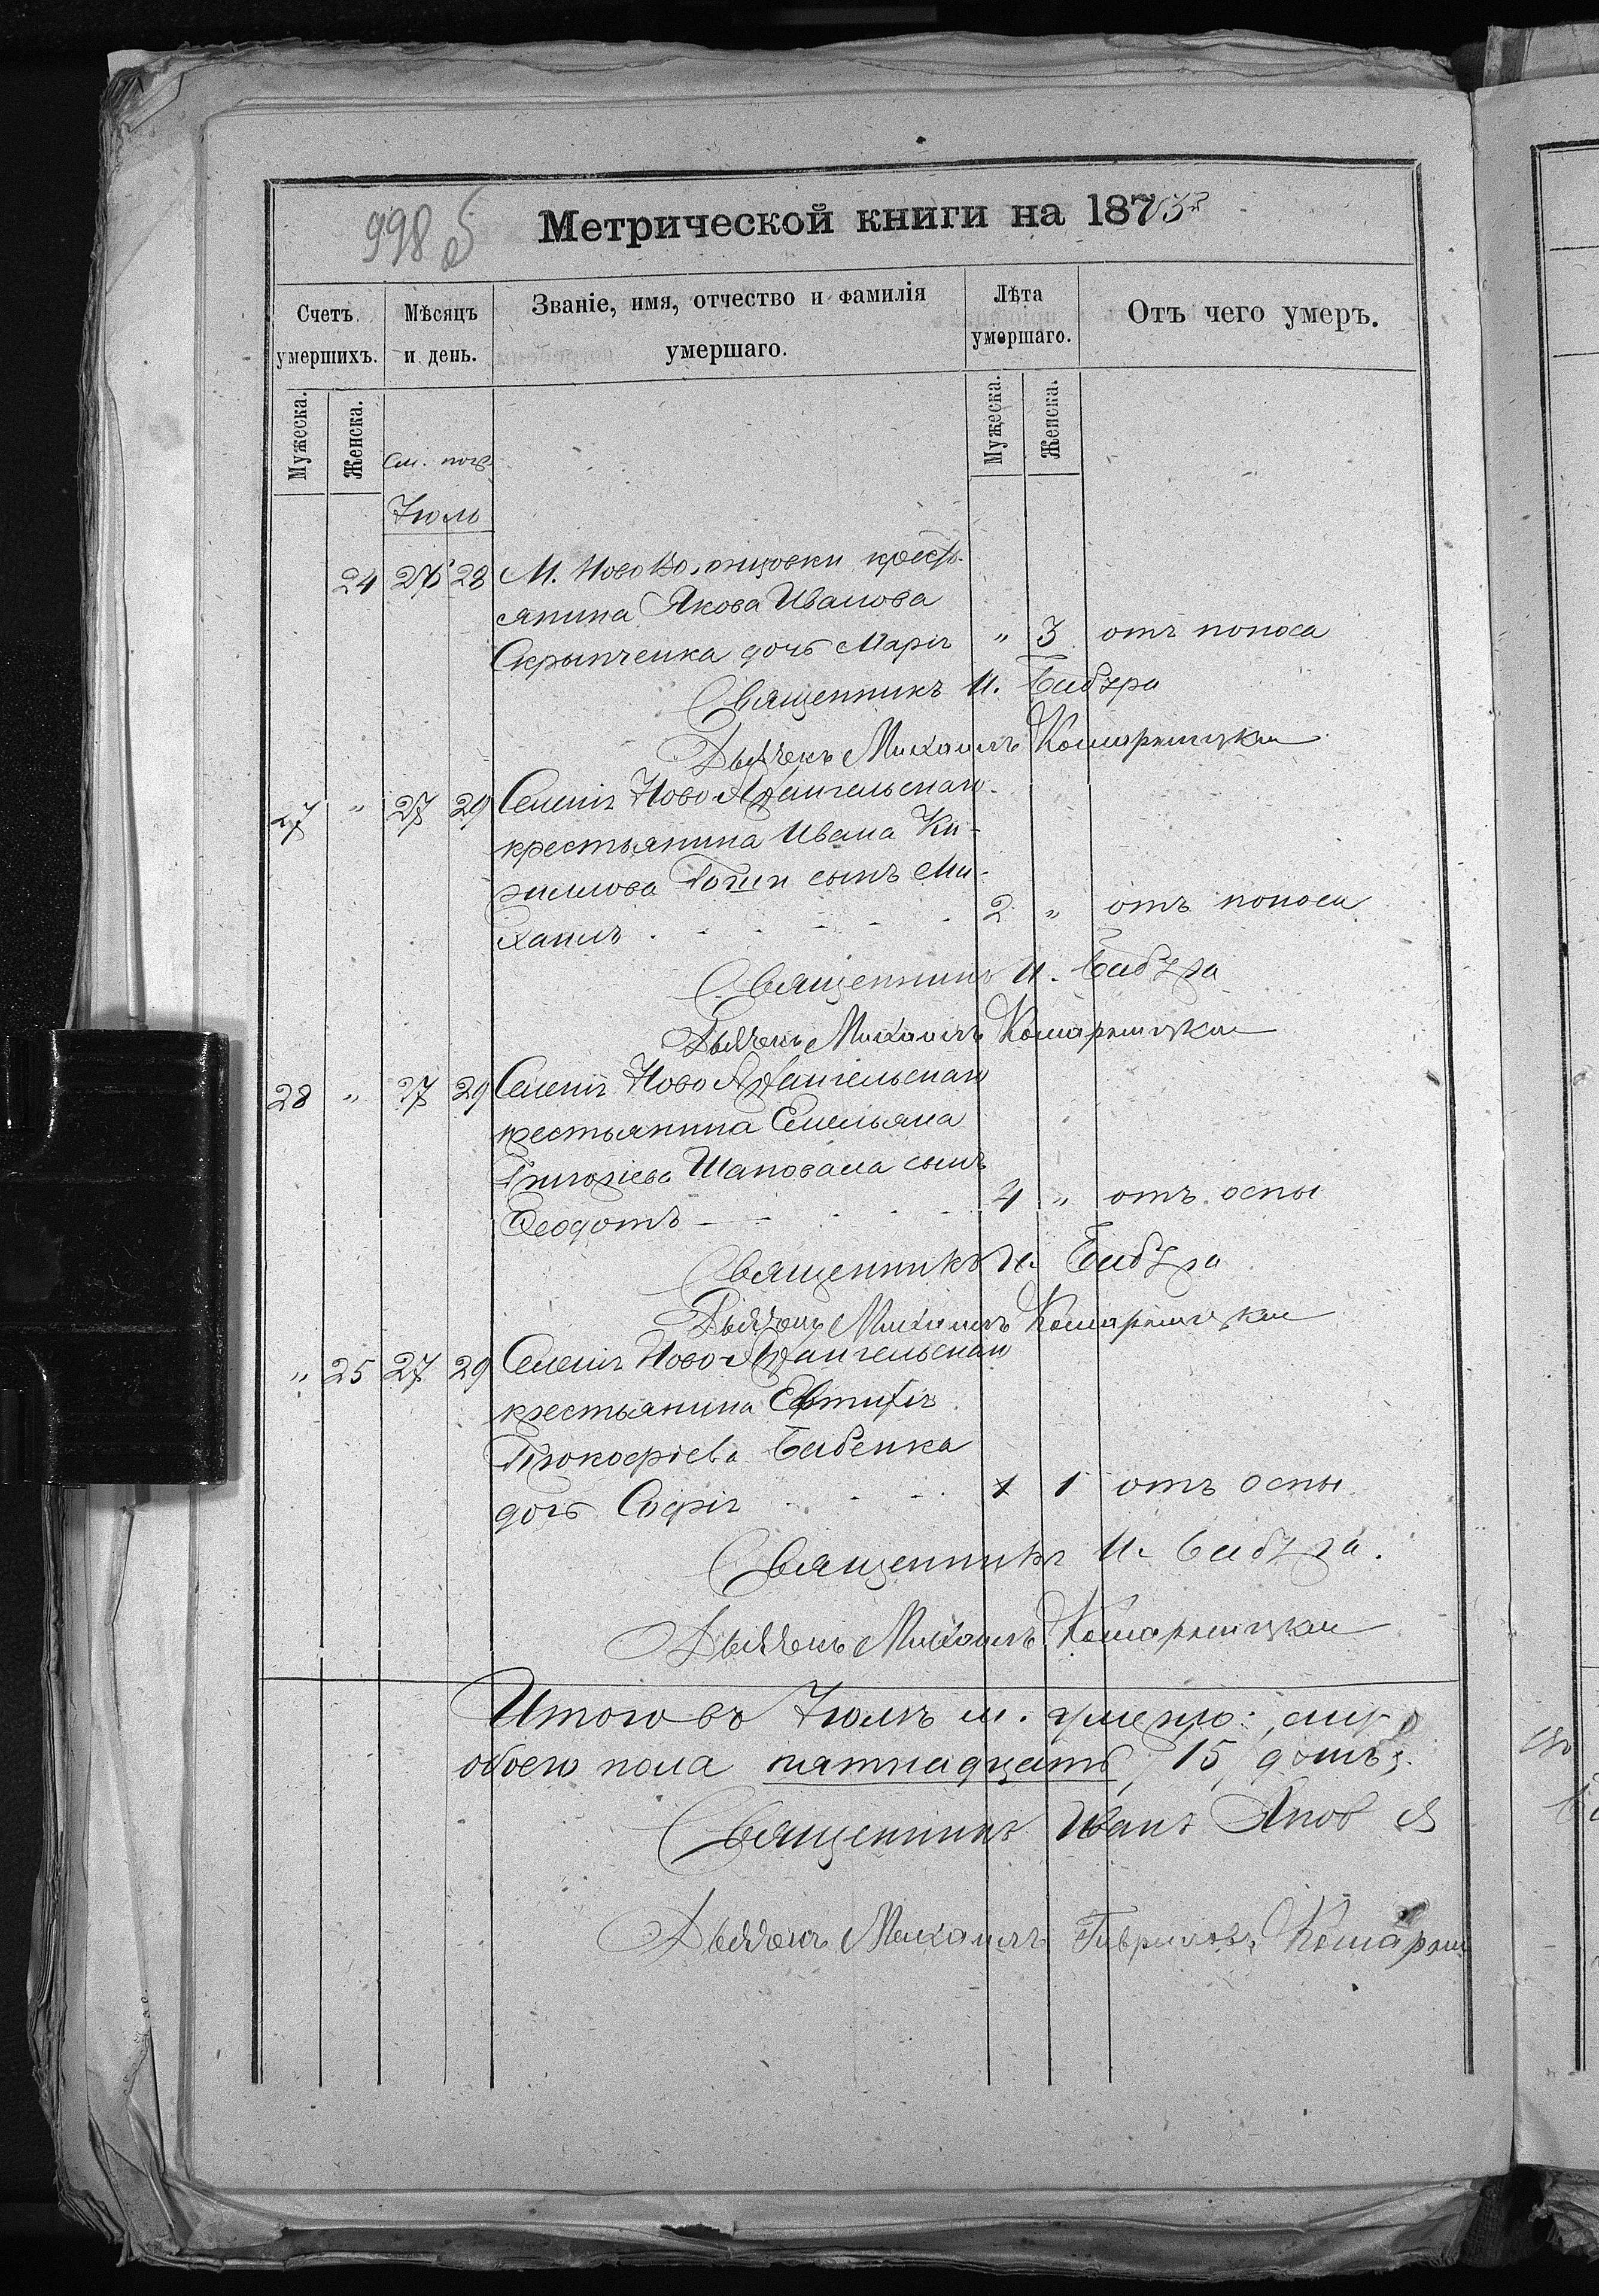 998 б
Метрической книги на 1875
Счетъ умершихъ. Мѣсяцъ и день. Званіе, имя, отчество и фамилія умершаго. Лѣта умершаго. Отъ чего умеръ.
Мужеска. Женска. Мужеска. Женска.
См. погр.
Іюль
24 26 28 М. Ново Воронцовки крест-
янина Якова Иванова
Скрыпченка дочь Марія " 3 отъ поноса
Священникъ И.
Дьячекъ Михаилъ
27 " 27 29 Селенія Ново Архангельскаго
крестьянина Ивана Ки-
рилова сынъ Ми-
хаилъ 2 " отъ поноса
Священникъ И.
Дьячекъ Михаилъ
28 " 27 29 Селенія Ново Архангельскаго
крестьянина Емельяна
Григоріева Шаповала сынъ
Ѳеодотъ 4 " отъ оспы
Священникъ И.
Дьячекъ Михаилъ
" 25 27 29 Селенія Ново Архангельскаго
крестьянина Евтихія
Прокофіева Бабенка
дочь Софія 1 отъ оспы
Священникъ И.
Дьячекъ Михаилъ
Итого въ Іюлѣ м. умерло:
обоего пола пятнадцать, 15, душъ.
Священникъ Иванъ
Дьячекъ Михаилъ Гавриловъ